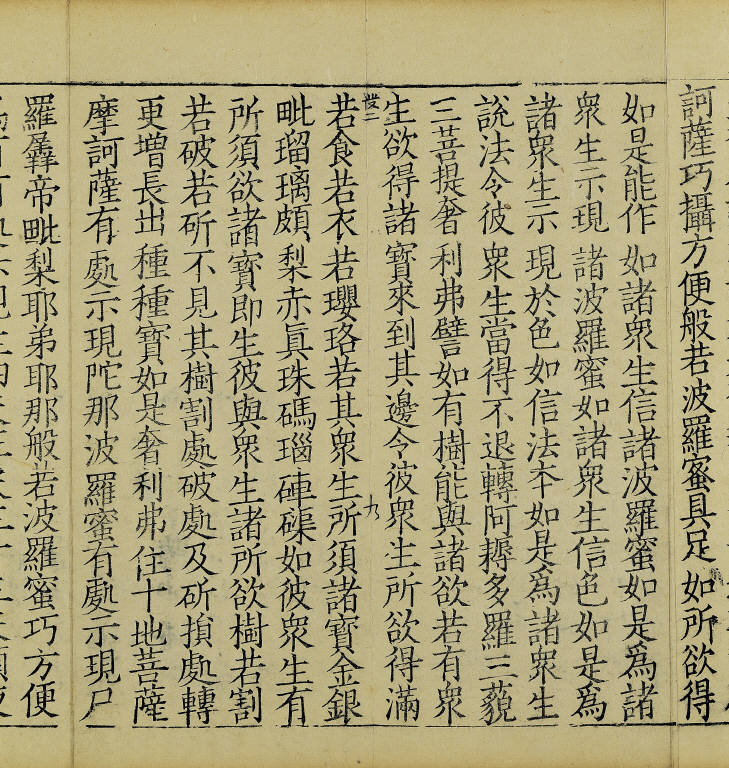 訶薩巧攝方便般若波羅蜜具足如所欲得
如是能作如諸衆生信諸波羅蜜如是為諸
衆生示現諸波羅蜜如諸衆生信色如是為
諸衆生示現於色如信法本如是為諸衆生
說法令彼衆生當得不退轉阿耨多羅三藐
三菩提奢利弗譬如有樹能與諸欲若有衆
生欲得諸寶來到其邊令彼衆生所欲得滿
九
若食若衣若瓔珞若其衆生所須諸寶金銀
毗瑠璃頗梨赤真珠碼瑙硨磲如彼衆生有
所須欲諸寶即生彼與衆生諸所欲樹若割
若破若斫不見其樹割處破處及斫損處轉
更增長出種種寶如是奢利弗住十地菩薩
摩訶薩有處示現陀那波羅蜜有處示現尸
羅羼帝毗梨耶弟耶那般若波羅蜜巧方便